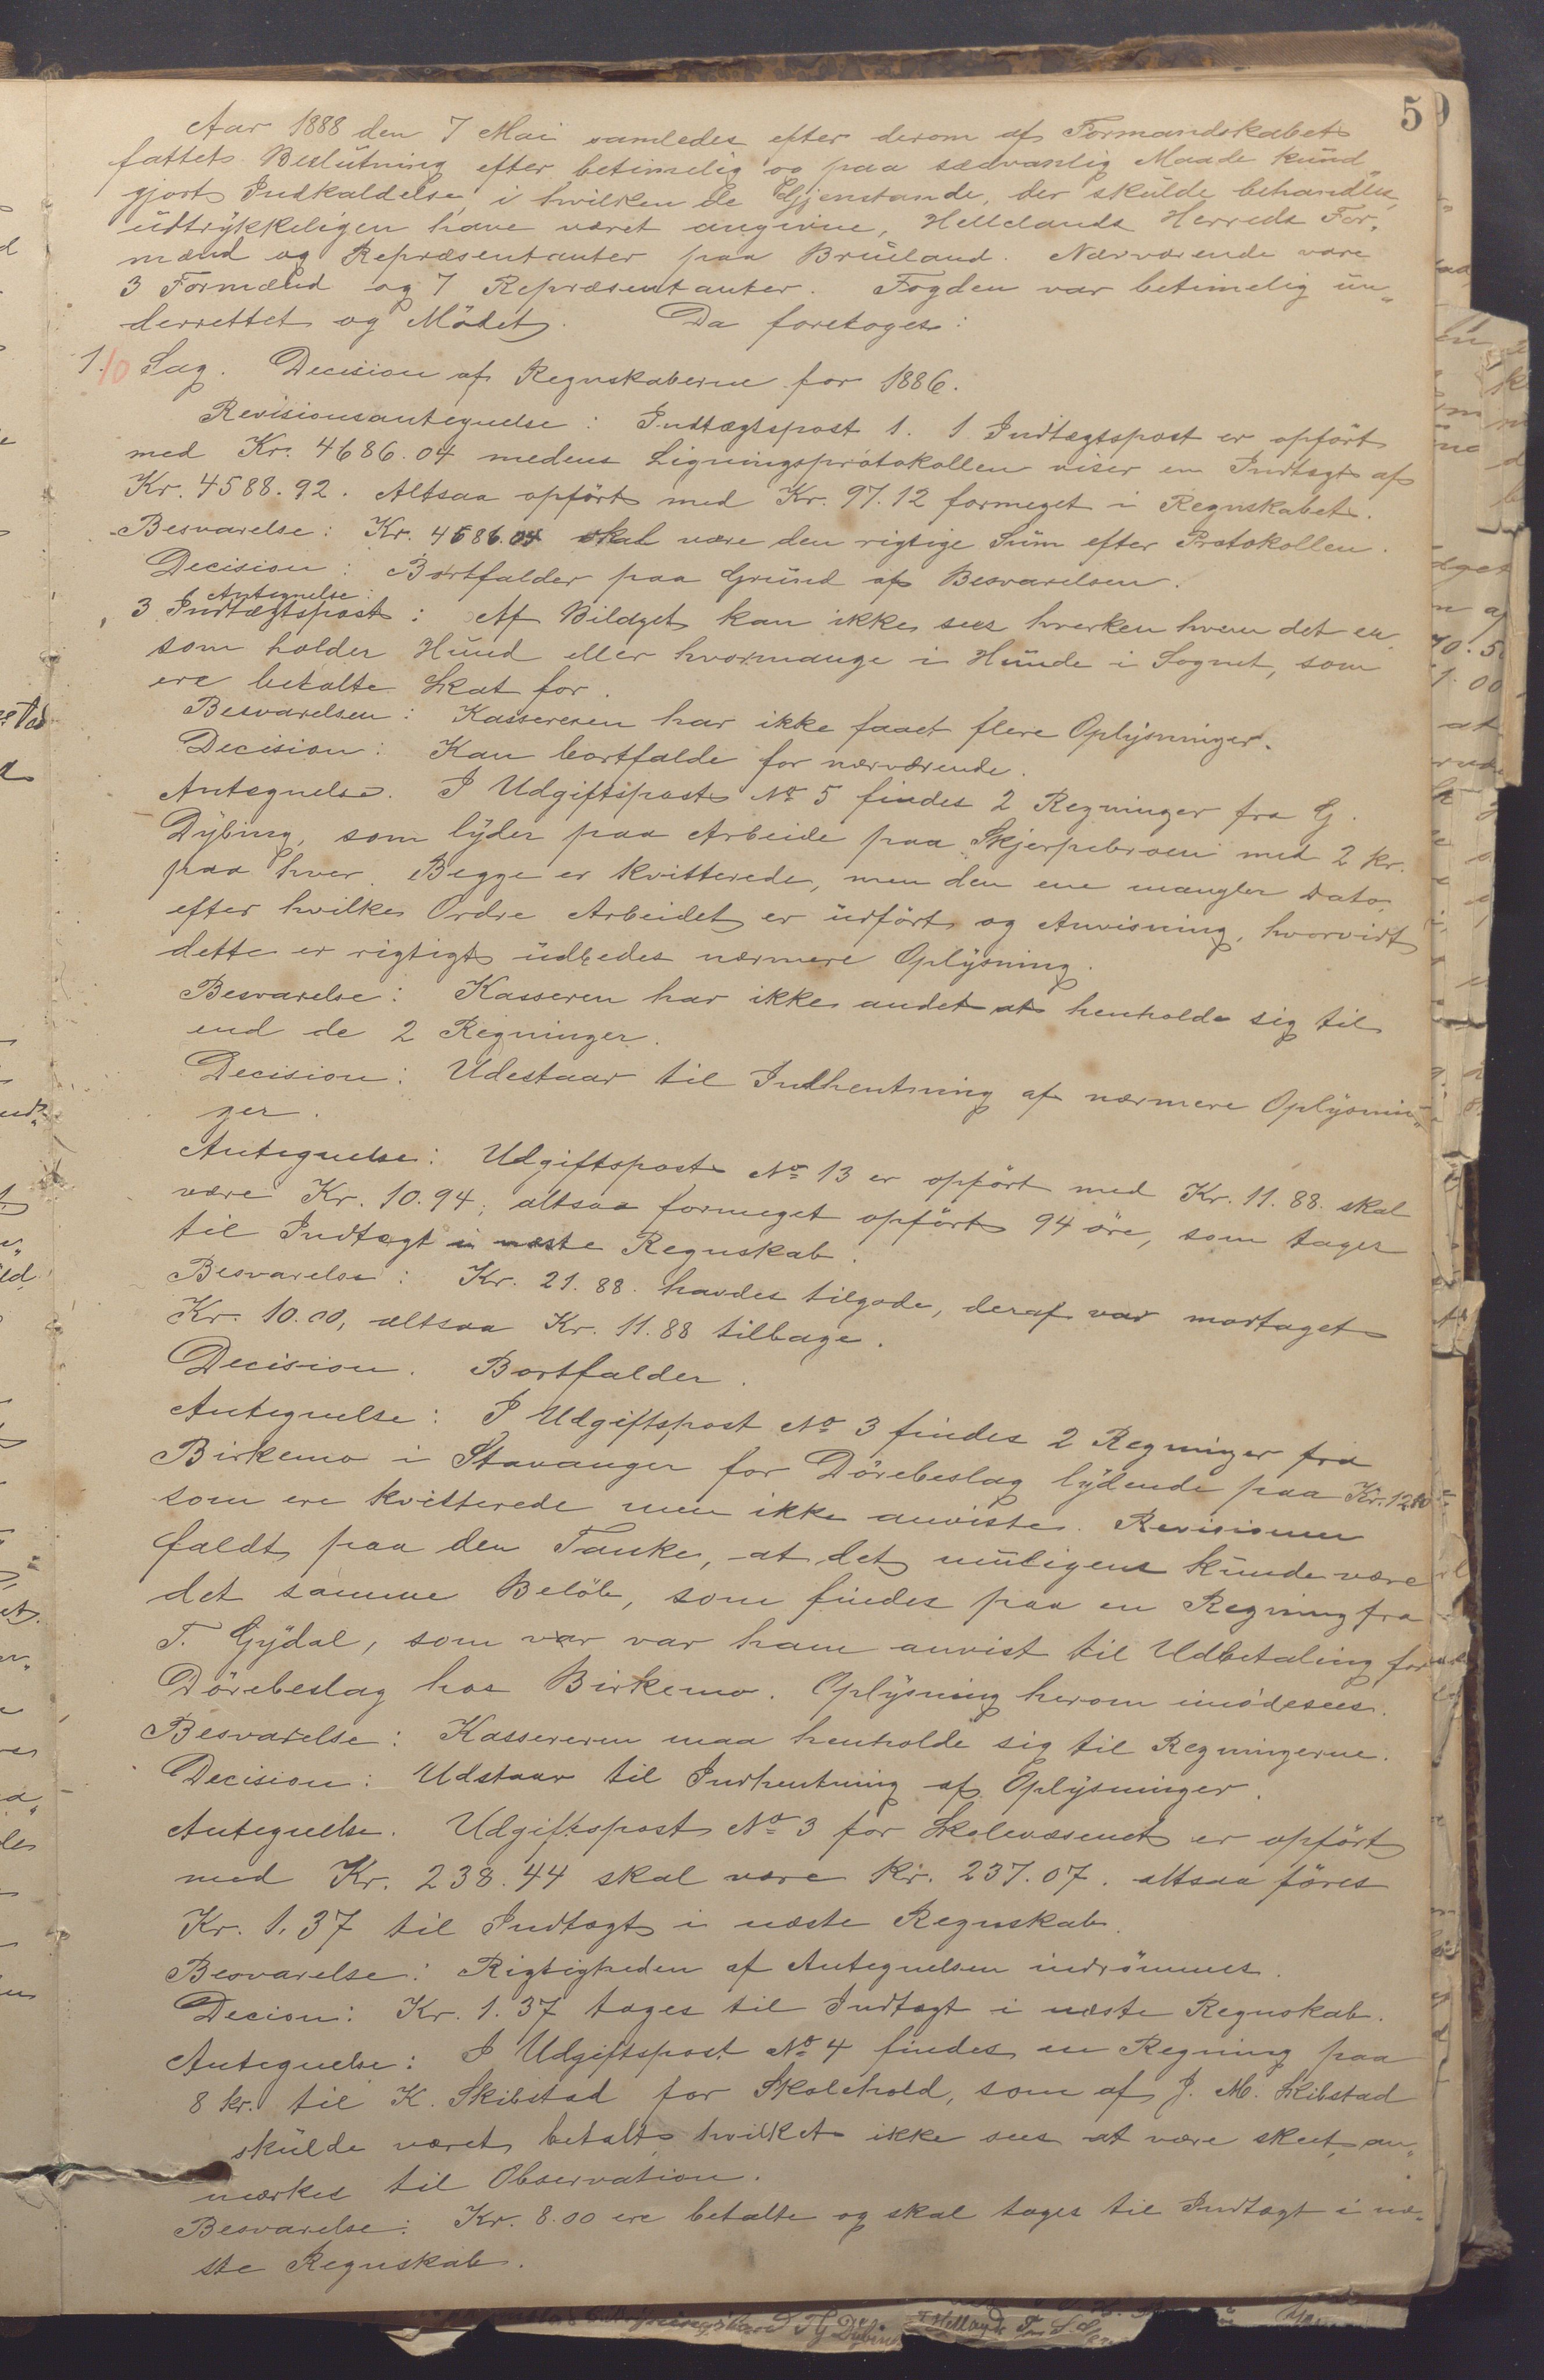 59
Aar 1888 den 7 Mai samledes efter derom af Formandskabet
fattet Beslutning efter betimelig og paa sædvanlig Maade kund„
gjort Indkaldelse, i hvilken de Gjenstande, der skulde behandles,
udtrykkeligen have været angivne, Hellelands Herreds For„
mænd og Repræsentanter paa Brüeland. Nærværende vare
3 Formænd og 7 Repræsentanter. Fogden var betimelig un„
derrettet og Mödet. Da foretoges:
1. 10 Sag. Decision af Regnskaberne for 1886.
Revisionsantegnelse: Indtægtspost 1. 1 Indtægtspost er opfört
med Kr. 4686.04 medens Ligningsprotokollen viser en Indtægt af
Kr. 4588.92. Altsaa opfört med Kr. 97.12 formeget i Regnskabet.
Besvarelse: Kr. 4686.04 skal være den rigtige Sum efter Protokollen.
Decision: Bortfalder paa Grund af Besvarelsen.
Antegnelse:
3 Indtægtspost: Af Bilaget kan ikke sees hverken hvem det er,
som holder Hund eller hvormange i Hunde i Sognet, som
ere betalte Skat for.
Besvarelsen: Kassereren har ikke faaet flere Oplysninger.
Decision: Kan bortfalde for nærværende.
Antegnelse. I Udgiftspost No 5 findes 2 Regninger fra G.
Dybing, som lyder paa Arbeide paa Skjerpebroen med 2 kr.
paa hver. Begge er kvitterede, men den ene mangler Dato,
efter hvilke Ordre Arbeidet er udfört og Anvisning, hvorvidt
dette er rigtigt udbedes nærmere Oplysning.
Besvarelse: Kasseren har ikke andet at henholde sig til
end de 2 Regninger.
Decision: Udestaar til Indhentning af nærmere Oplysnin„
ger.
Antegnelse: Udgiftspost No 13 er opfört med Kr. 11.88. skal
være Kr. 10.94; altsaa formeget opfört 94 öre, som tages
til Indtægt i næste Regnskab.
Besvarelse: Kr. 21.88. havdes tilgode, deraf var modtaget
Kr. 10.00, altsaa Kr. 11.88 tilbage.
Decision. Bortfalder.
Antegnelse: I Udgiftspost No 3 findes 2 Regninger fra
Birkemo i Stavanger for Dörebeslag lydende paa Kr. 12.80
som ere kvitterede men ikke anviste. Revisionen
faldt paa den Tanke, at det muligens kunde være
det samme Belöb, som findes paa en Regning fra
T. Gydal, som var var ham anvist til Udbetaling for
Dörebeslag hos Birkemo. Oplysning herom imödesees.
Besvarelse: Kassereren maa henholde sig til Regningerne.
Decision: Udstaar til Indhentning af Oplysninger.
Antegnelse. Udgiftspost No 3 for Skolevæsenet er opfört
med Kr. 238.44 skal være Kr. 237.07. altsaa föres
Kr. 1.37 til Indtægt i næste Regnskab.
Besvarelse: Rigtigheden af Antegnelsen indrömmes.
Decion: Kr. 1.37 tages til Indtægt i næste Regnskab.
Antegnelse: I Udgiftspost No 4 findes en Regning paa
8 kr. til K. Skibstad for Skolehold, som af J. M. Skibstad
skulde været betalt, hvilket ikke sees at være skeet, an„
mærkes til Observation.
Besvarelse: Kr. 8.00 ere betalte og skal tages til Indtægt i næ„
ste Regnskab.